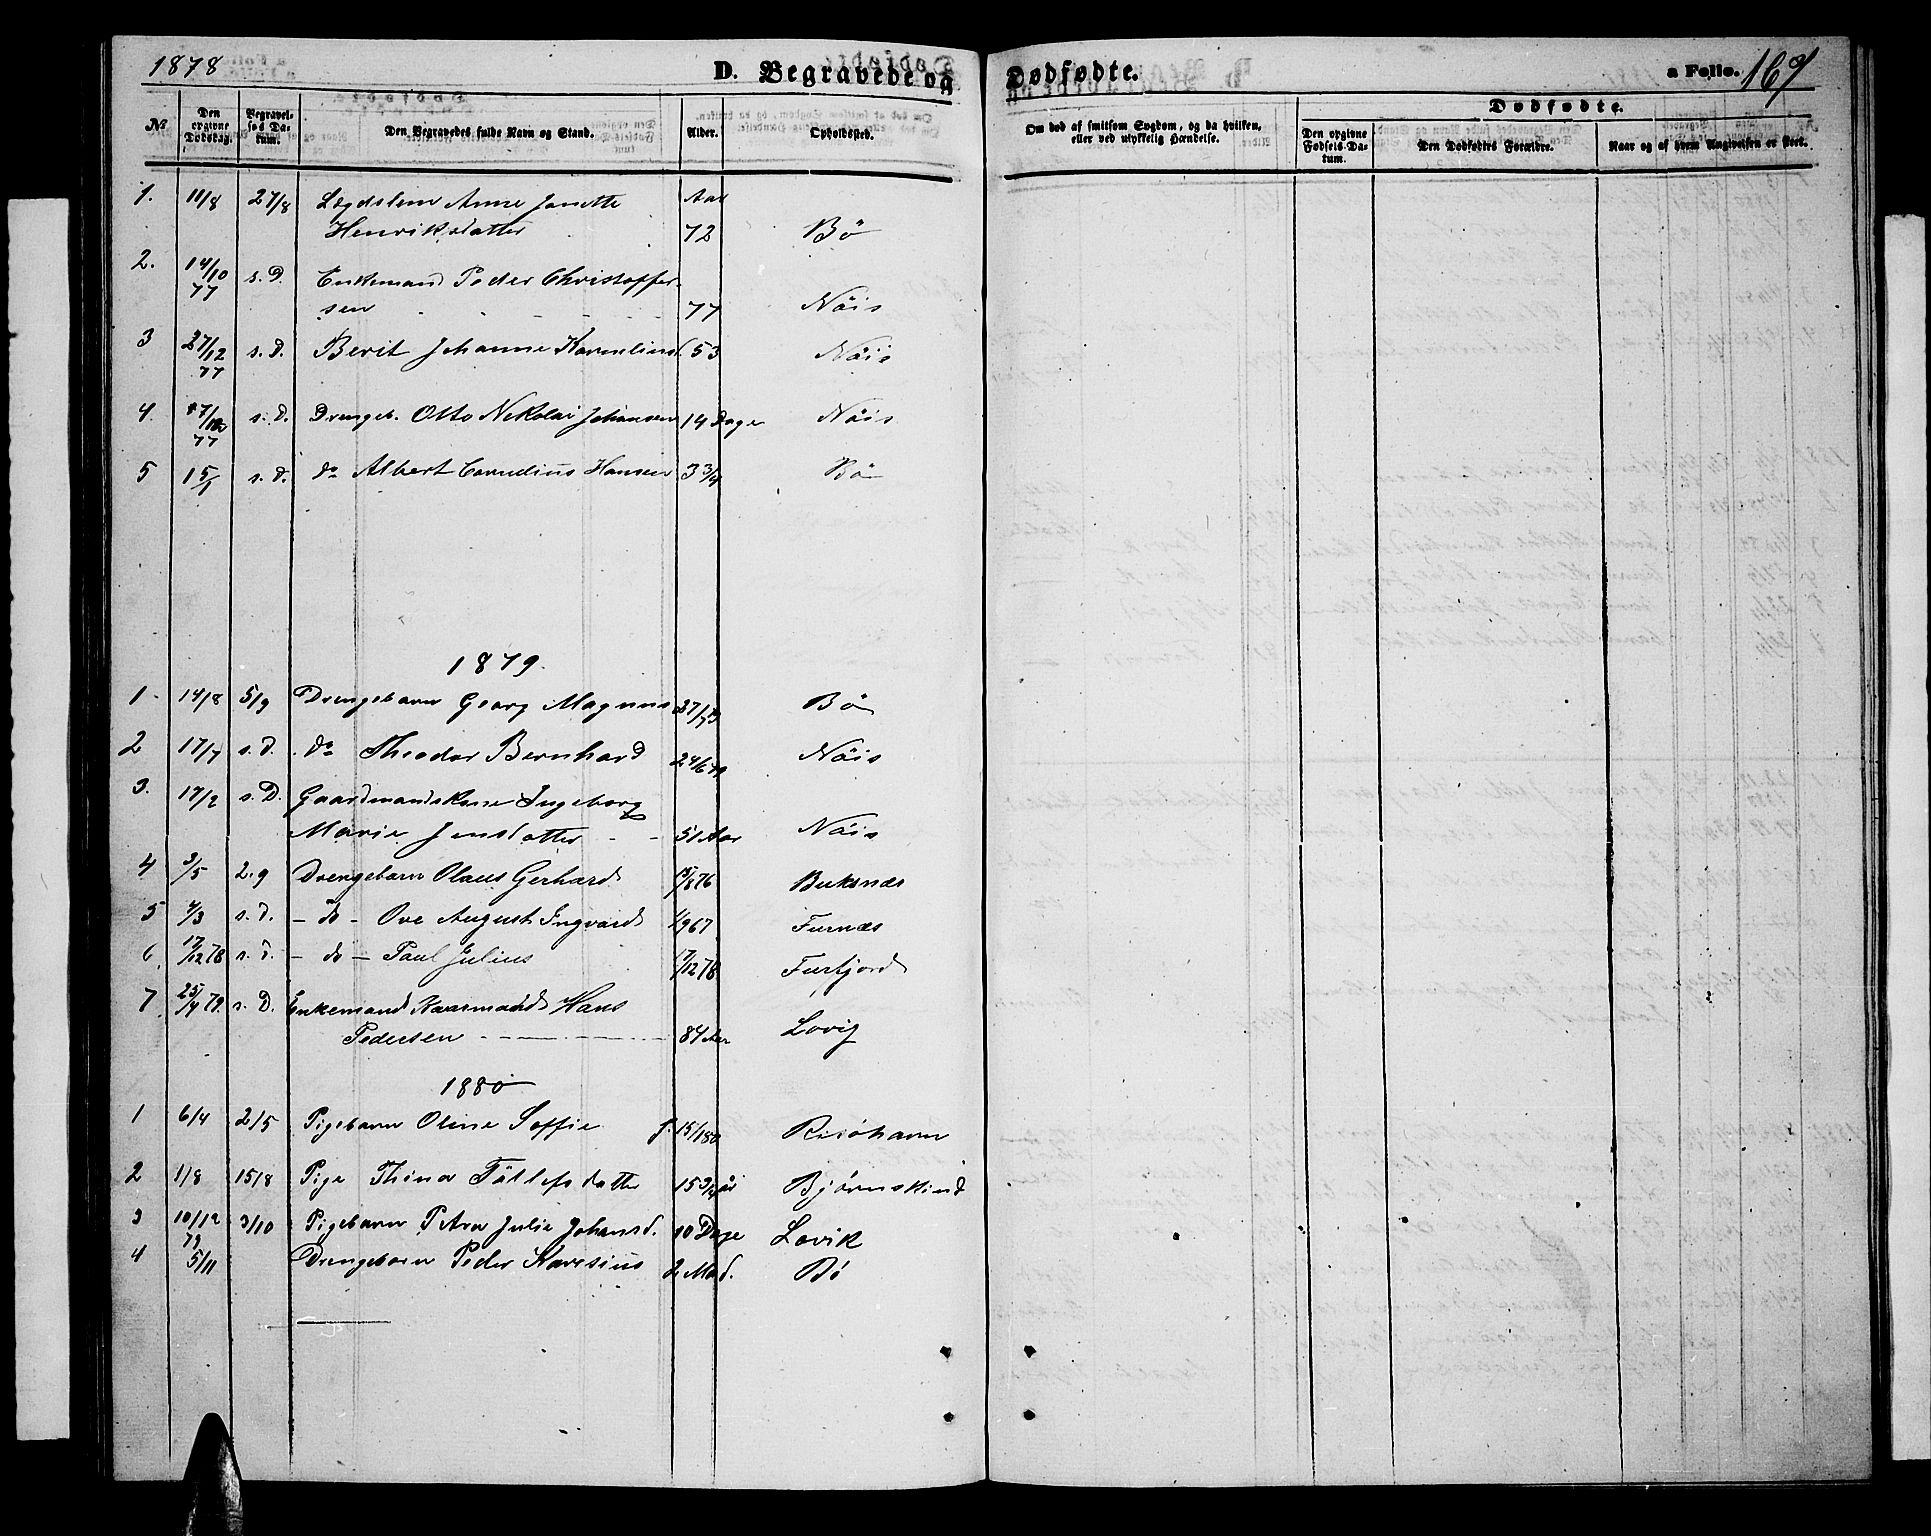 1878
D. Begravede og Dødfødte.
a Folio. 169
№
Den opgivne Dødsdag.
Begravelses Datum.
Den Begravedes fulde Navn og Stand.
Alder.
Opholdssted.
Om død af smitsom Sygdom, og da hvilken, eller ved ulykkelig Hændelse.
Dødfødte.
Den opgivne Fødsels-Datum.
Den Dødfødtes Forældre.
Naar og af hvem Angivelsen er skeet.
1. 11/8 27/8 Lægdslem Anne Janette Aar
Henriksdatter 72 Bø
2. 14/10 77 s. D. Enkemand Peder Christoffer-
sen 77 Nöis
3 27/12 77 s. d. Berit Johanne Kornelius d. 53 Nöis
4. 77 s. D. Drengeb. Otto Nikolai Johansen 14 Dage Nöis
5 15/1 s. d. do Albert Cornelius Hansen 3 3/4 Bø
1879.
1 14/8 5/9 Drengebarn Georg Magnus Bø
2 17/7 s. d. do Theodor Bernhard 24/6 79 Nöis
3. 17/2 s. D. Gaardmandskone Ingeborg
Marie Jensdatter 51 Aar Nöis
4 3/5 2.9 Drengebarn Olaus Gerhard Buksnæs
5 4/3 s. d. - do - Ove August Ingvard Furnæs
6 17/12 78 s. d. - do - Paul Julius 7/12 78 Furfjord
7 25/4 79. s. D. Enkemand Kaarmand Hans
Pedersen 84 Aar Lovig
1880
1 6/4 2/5 Pigebarn Oline Soffie f. 15/1 80 Risöhavn
2 1/8 15/8 Pige Thina Tollefsdatter 15 3/4 år Bjørnskind
3 10/12 79 3/10 Pigebarn Petra Julie Johansd. 10 Dage Lovik
4 5/11 Drengebarn Peder Karesius 2 Maa d. Bö